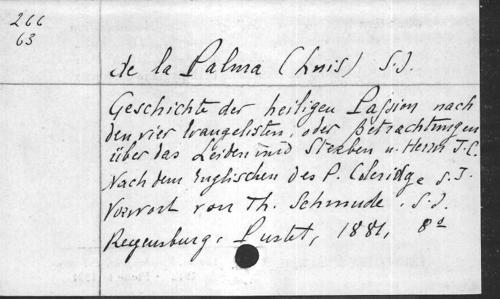 266
63
de la Palma (Luis) S. J.
Geschichte der heiligen Passion nach
den vier Evangelisten, oder Betrachtungen
über das Leiden und Sterben u. Herrn J. C.
Nach dem Englischen des P. Coleridge S. J.
Vorwort von Th. Schmude, S. J.
Regensburg, Pustet, 1881, 8°